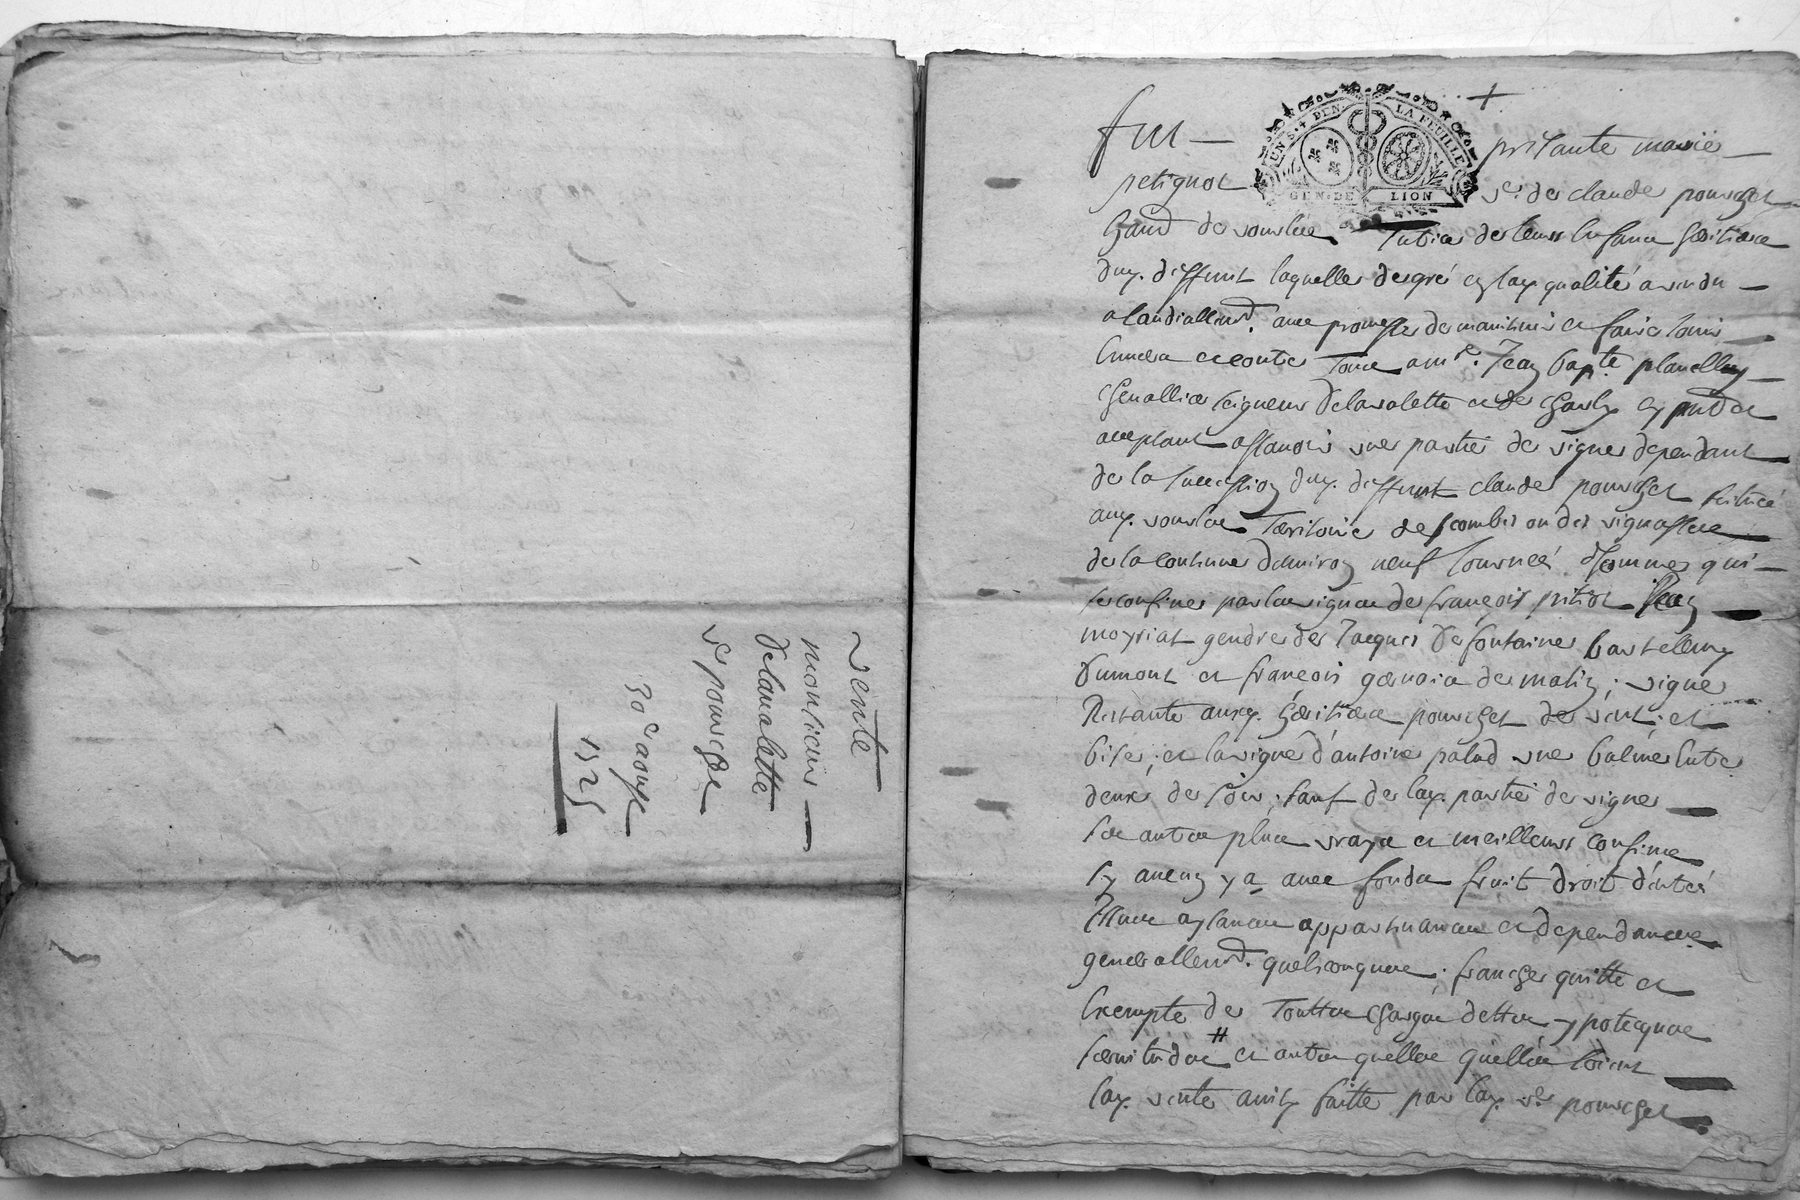 vente
monsieur
Delavalette
ve pourchet
30e aoust
1725
UN S. + DEN. LA FEUILLE
GEN. DE LION
fut — presante marie —
petignot ve. de claude pourchet
hand de tutrice de leurs enfans heritiers
dud. deffunt laquelle de gré en lad. qualité a vendu —
alaudiallemd. avec promesse de maintenir et faire jouir
envers et contre tous a mre. Jean bapte. planelly
chevallier seigneur de lavalette et de charly cy present et
acceptant assavoir une partie de vigne dependant
de la succession dud. deffunt claude pourchet scituée
aud. territoire des combes ou des
de la contenue d'environ neuf journées d'hommes qui —
se confine par les vignes de françois Jean
moyriat gendre de Jacques Defontaine bartellemy
Dumont et françois gervais de matin, vigne
Restante auxd. heritiers pourchet de vent; et
bise; et la vigne d'antoine palud une balme entre
deux de soir; sauf de lad. partie de vigne
ses autres plus vrays et meilleurs confins
sy aucun y a, avec fonds fruit droit d'entrée
issue aysances appartenances et dependances
generallemt. quelconques; franche quitte et
Exempte de Touttes charges dettes ypoteques
servitudes # et autres quelles quelles soient
lad. vente ainsy faitte par lad. ve pourchet